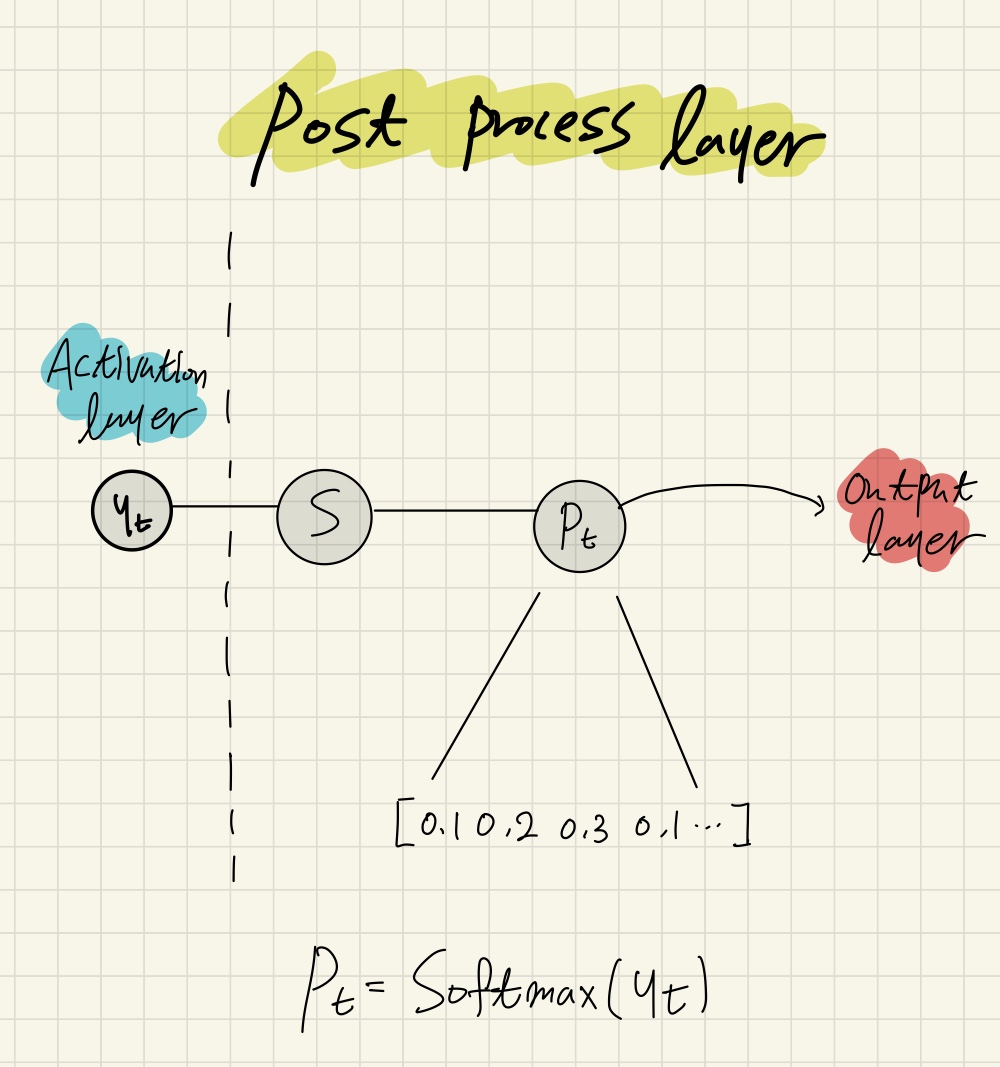 Post process layer
Activation
layer
yt
S
Pt
Output
layer
[0.1 0.2 0.3 0.1 ...]
Pt = Softmax(yt)